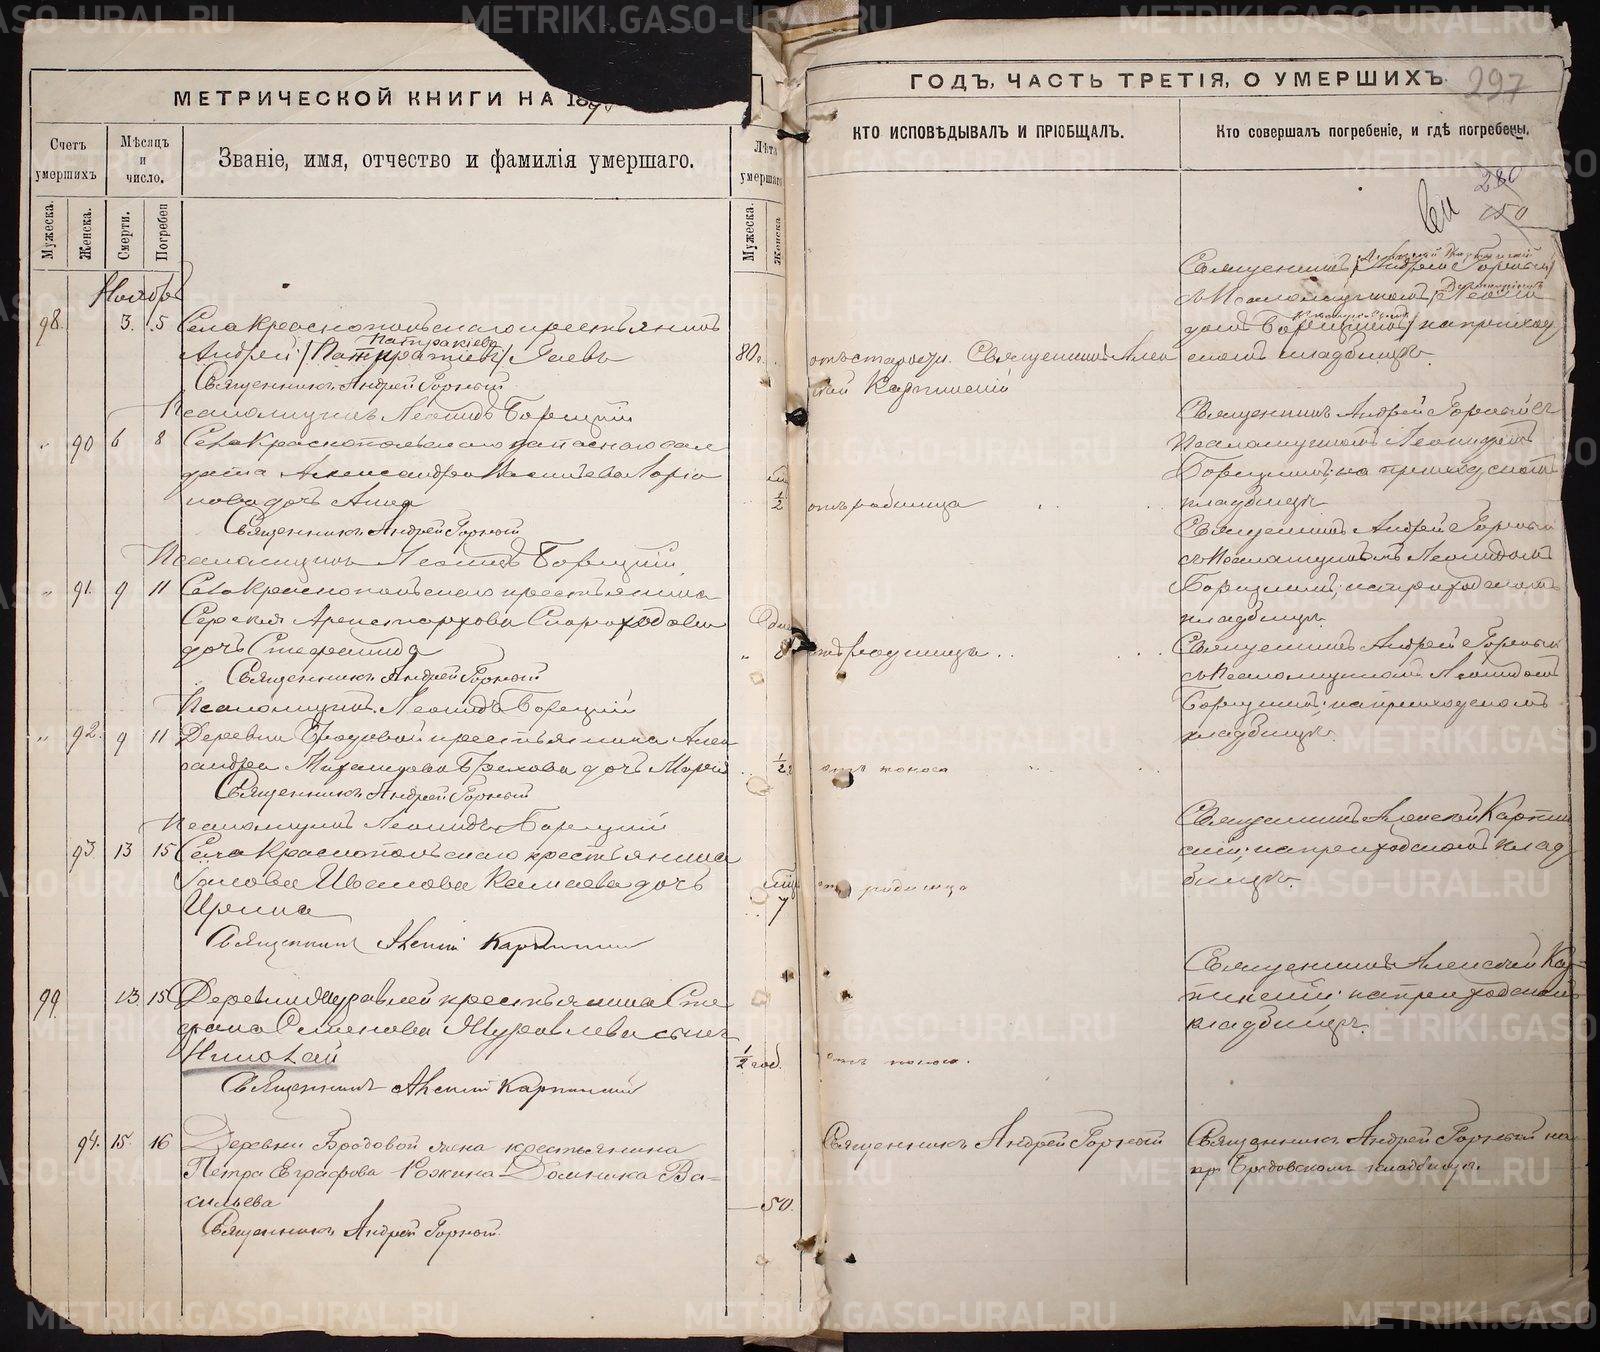 МЕТРИЧЕСКОЙ КНИГИ НА 18
Счетъ умершихъ
Мѣсяцъ и число.
Званіе, имя, отчество и фамилія умершаго.
Лѣта умершаго
Мужеска.
Женска.
Смерти.
Погребен
Мужеска.
Женска
Ноябрь
98. 3. 5 Села Краснопольскаго крестьянинъ
Андрей Гаевъ 80
Священникъ Андрей Горный
Псаломщикъ Леонидъ Борецкій
90 6 8 Села Краснопольскаго запаснаго сол
дата Александра Ларіо
нова дочь Анна 1/2
Священникъ Андрей Горный
Псаломщикъ Леонидъ Борецкій
91. 9 11 Села Краснопольскаго крестьянина
Сергія Аристархова Скороходова
дочь Стефанида 8
Священникъ Андрей Горный
Псаломщикъ Леонидъ Борецкій
92. 9 11 Деревни крестьянина Алек
сандра Грехова дочь Марія 1/2
Священникъ Андрей Горный
Псаломщикъ Леонидъ Борецкій
93 13 15 Села Краснопольскаго крестьянина
Іакова Иванова дочь
Ирина 7
Священникъ Алексій Карпинскій
99 13 15 Деревни крестьянина Сте
фана Семенова Журавлева сынъ
Николай 1/2 год.
Священникъ Алексій Карпинскій
94. 15. 16 Деревни Бродовой жена крестьянина
Петра Евграфова Рожина Домника Ва=
сильева 50.
Священникъ Андрей Горный.
ГОДЪ, ЧАСТЬ ТРЕТІЯ, О УМЕРШИХЪ.
297
КТО ИСПОВѢДЫВАЛЪ И ПРІОБЩАЛЪ.
Кто совершалъ погребеніе, и гдѣ погребены.
280
150
Священникъ Андрей Горный
съ Псаломщикомъ
на приход
отъ старости. Священникъ Алек
сѣй Карпинскій
скомъ кладбищѣ.
Священникъ Андрей Горный съ
Псаломщикомъ Леонидомъ
Борецкимъ; на приходскомъ
отъ родимца
кладбищѣ
Священникъ Андрей Горный
съ Псаломщикомъ Леонидомъ
Борецкимъ; на приходскомъ
кладбищѣ.
отъ родимца
Священникъ Андрей Горный
съ Псаломщикомъ Леонидомъ
Борецкимъ; на приходскомъ
кладбищѣ.
отъ поноса
Священникъ Алексѣй Карпин
скій; на приходскомъ клад
бищѣ.
отъ родимца
Священникъ Алексѣй Кар=
пинскій; на приходскомъ
кладбищѣ.
отъ поноса.
Священникъ Андрей Горный
Священникъ Андрей Горный на
Бродовскомъ кладбищѣ.
METRIKI.GASO-URAL.RU